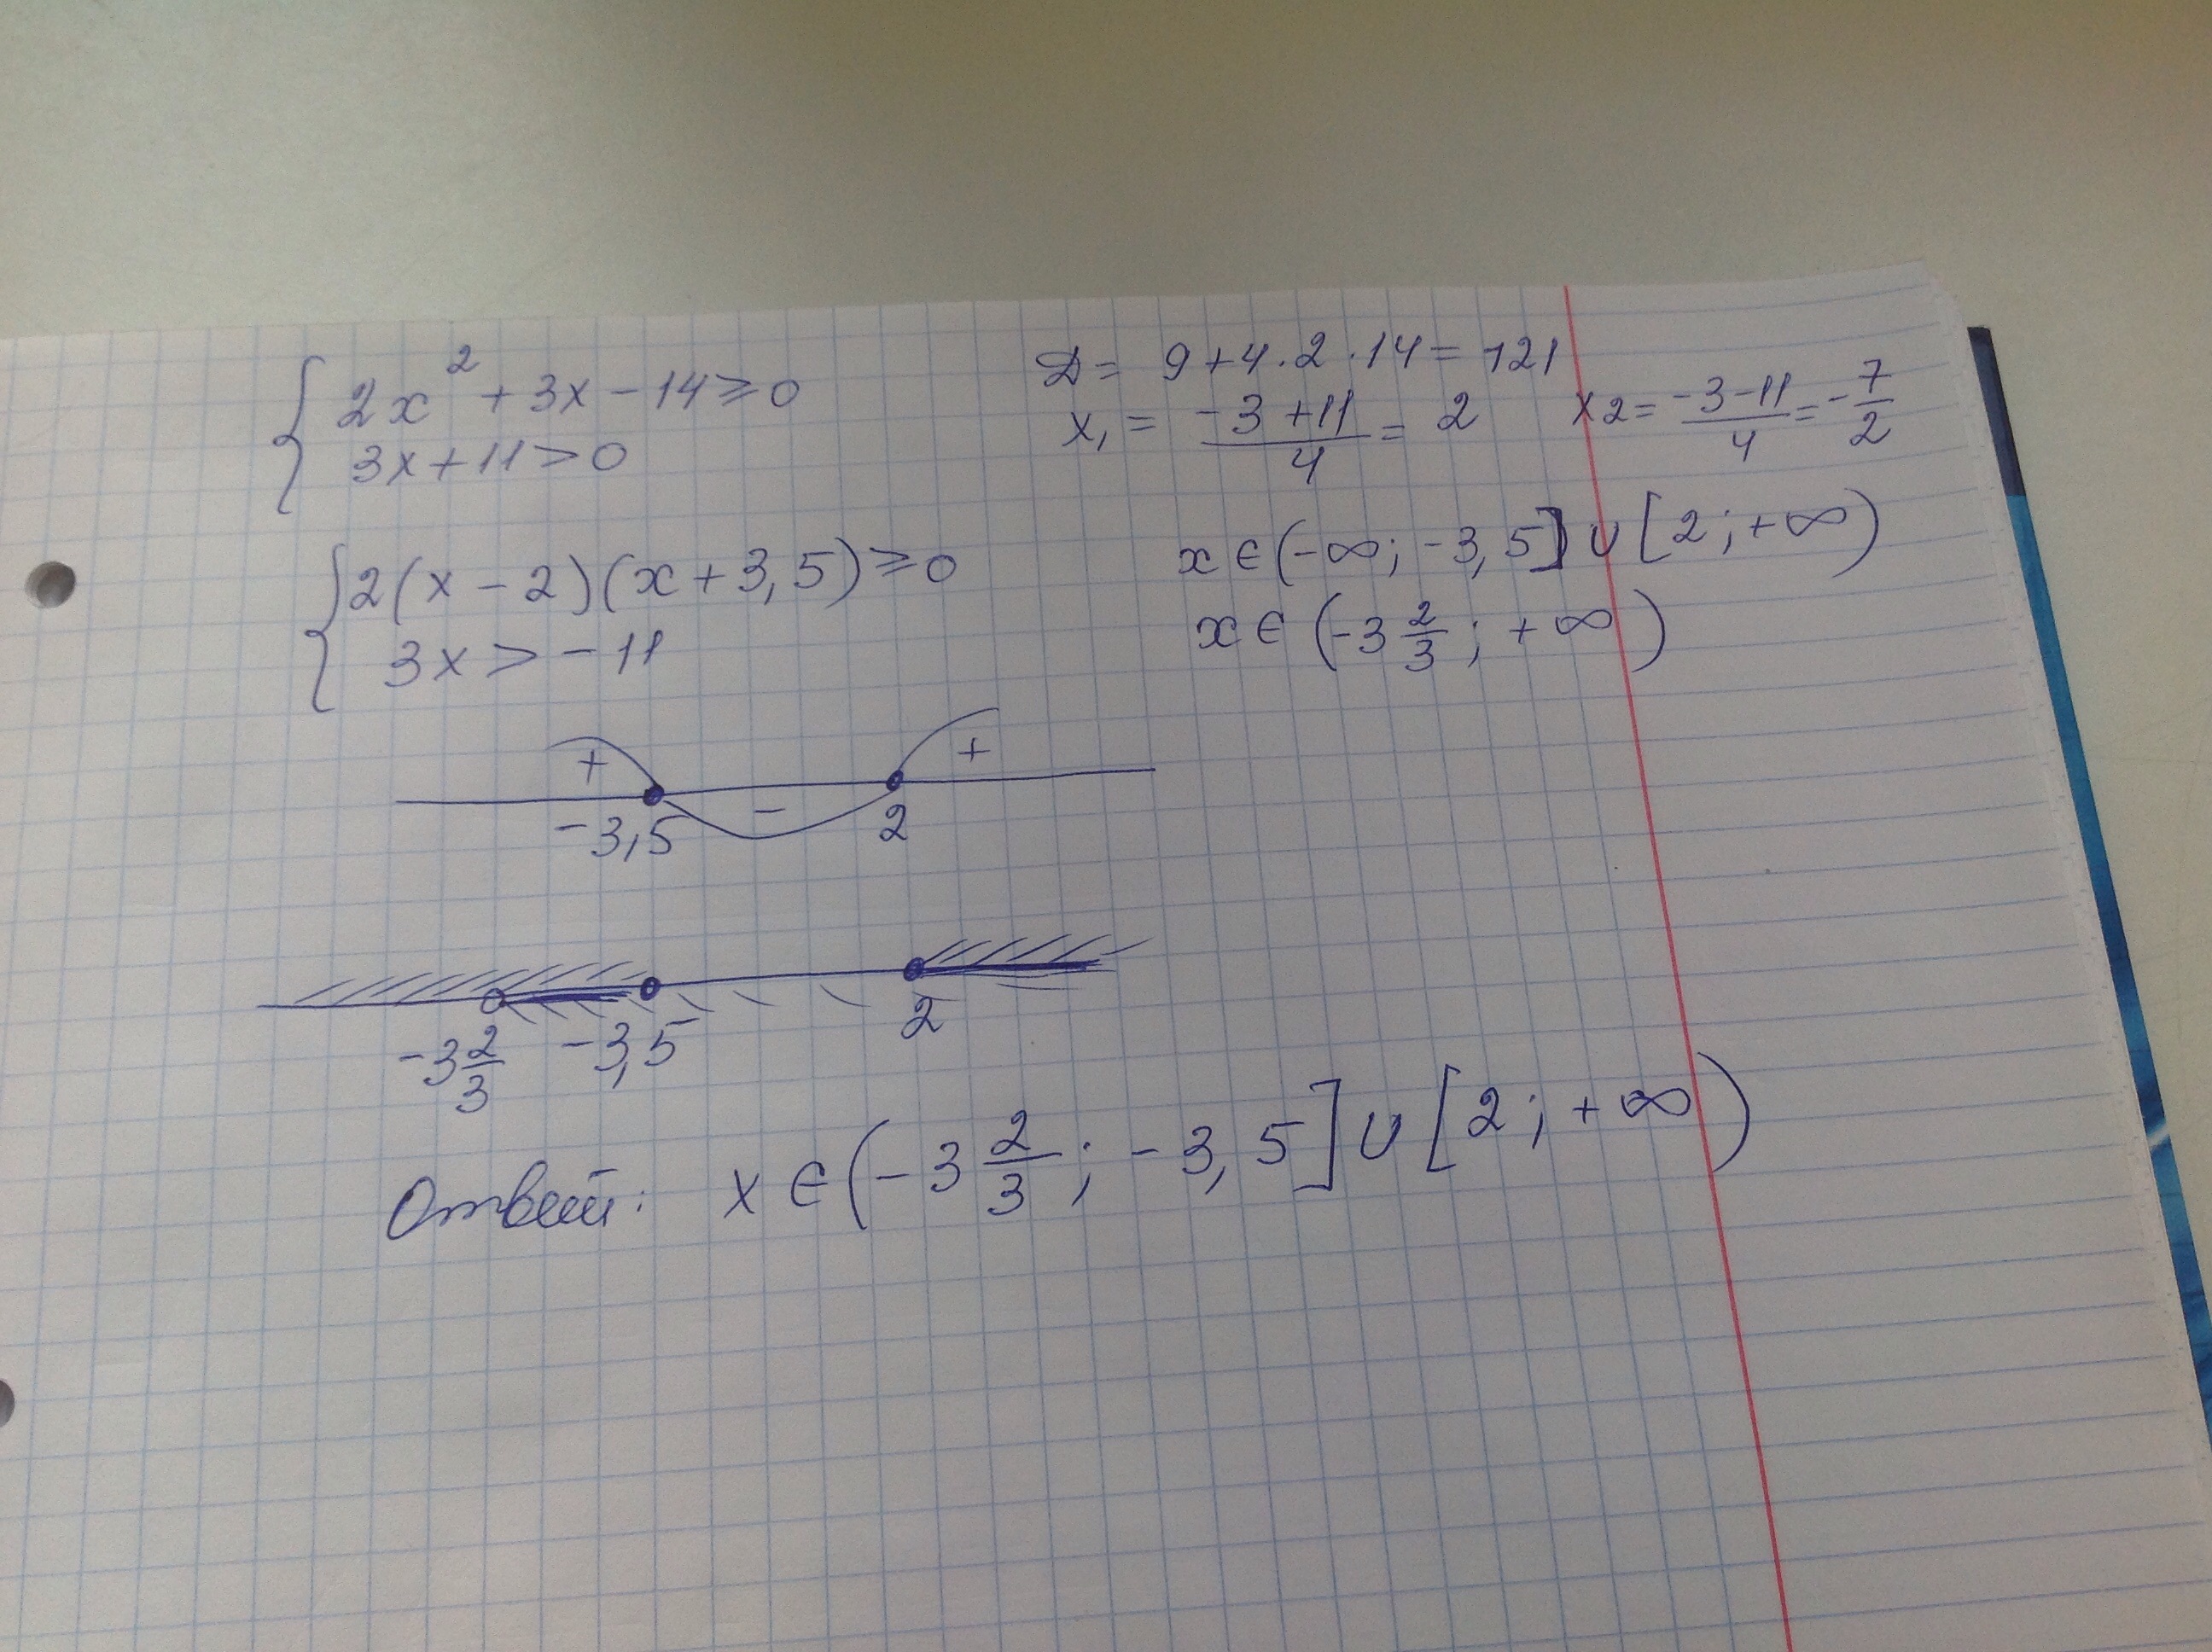 { 2x² + 3x - 14 ≥ 0
3x + 11 > 0
D = 9 + 4 · 2 · 14 = 121
x₁ = (-3 + 11)/4 = 2   x2 = (-3 - 11)/4 = -7/2
{ 2(x - 2)(x + 3,5) ≥ 0
3x > -11
x ∈ (-∞; -3,5] ∪ [2; +∞)
x ∈ (-3 2/3; +∞)
+ - +
-3,5 2
-3 2/3 -3,5 2
Ответ: x ∈ (-3 2/3; -3,5] ∪ [2; +∞)